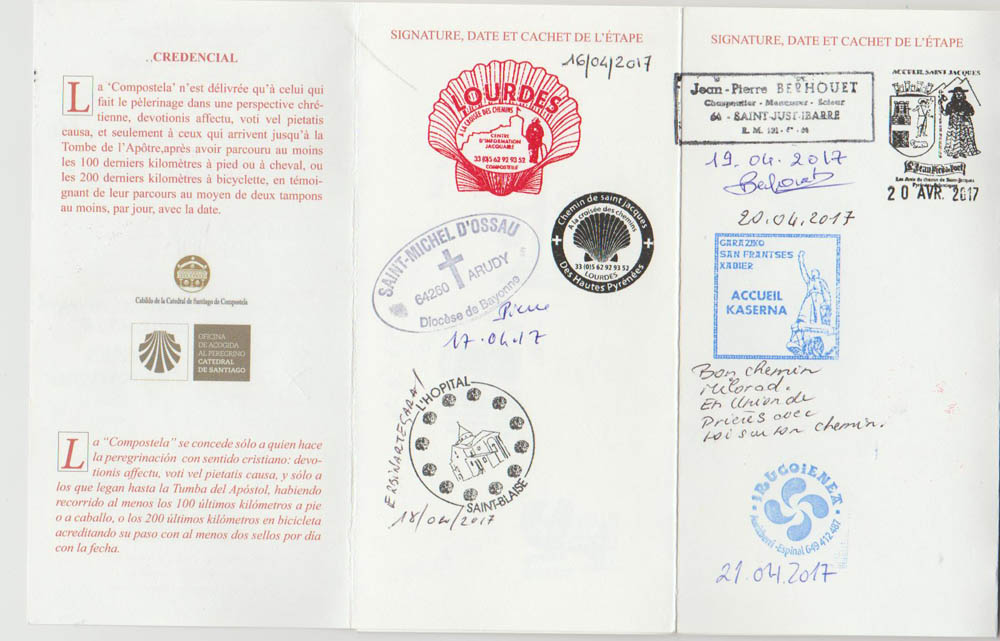 ..CREDENCIAL
La ‘Compostela’ n’est délivrée qu’à celui qui
fait le pèlerinage dans une perspective chré-
tienne, devotionis affectu, voti vel pietatis
causa, et seulement à ceux qui arrivent jusqu’à la
Tombe de l’Apôtre,après avoir parcouru au moins
les 100 derniers kilomètres à pied ou à cheval, ou
les 200 derniers kilomètres à bicyclette, en témoi-
gnant de leur parcours au moyen de deux tampons
au moins, par jour, avec la date.
Cabildo de la Catedral de Santiago de Compostela
OFICINA
DE ACOGIDA
AL PEREGRINO
CATEDRAL
DE SANTIAGO
La “Compostela” se concede sólo a quien hace
la peregrinación con sentido cristiano: devo-
tionis affectu, voti vel pietatis causa, y sólo a
los que legan hasta la Tumba del Apóstol, habiendo
recorrido al menos los 100 últimos kilómetros a pie
o a caballo, o los 200 últimos kilómetros en bicicleta
acreditando su paso con al menos dos sellos por dia
con la fecha.
SIGNATURE, DATE ET CACHET DE L’ÉTAPE
16/04/2017
LOURDES
A LA CROISÉE DES CHEMINS
CENTRE
D'INFORMATION
JACQUAIRE
33 (0)5 62 92 93 52
COMPOSTELLE
Chemin de saint Jacques
A la croisée des chemins
33 (0)5 62 92 93 52
LOURDES
Des Hautes Pyrenées
SAINT-MICHEL D'OSSAU
64260 ARUDY
Diocèse de Bayonne
Pierre
17.04.17
L'HOPITAL
SAINT-BLAISE
18/04/2017
SIGNATURE, DATE ET CACHET DE L’ÉTAPE
Jean-Pierre BERHOUET
Charpentier - Menuisier - Scieur
64 - SAINT-JUST-IBARRE
19.04.2017
Berhouet
ACCUEIL SAINT JACQUES
St Jean Pied de Port
Les Amis du Chemin de Saint-Jacques
20 AVR. 2017
20.04.2017
GARAZIKO
SAN FRANTSES
XABIER
ACCUEIL
KASERNA
Bon chemin
Milorad.
En union de
Prières avec
toi sur ton chemin.
IRUGOIENEA
Auritzberri-Espinal 649 412 487
21.04.2017